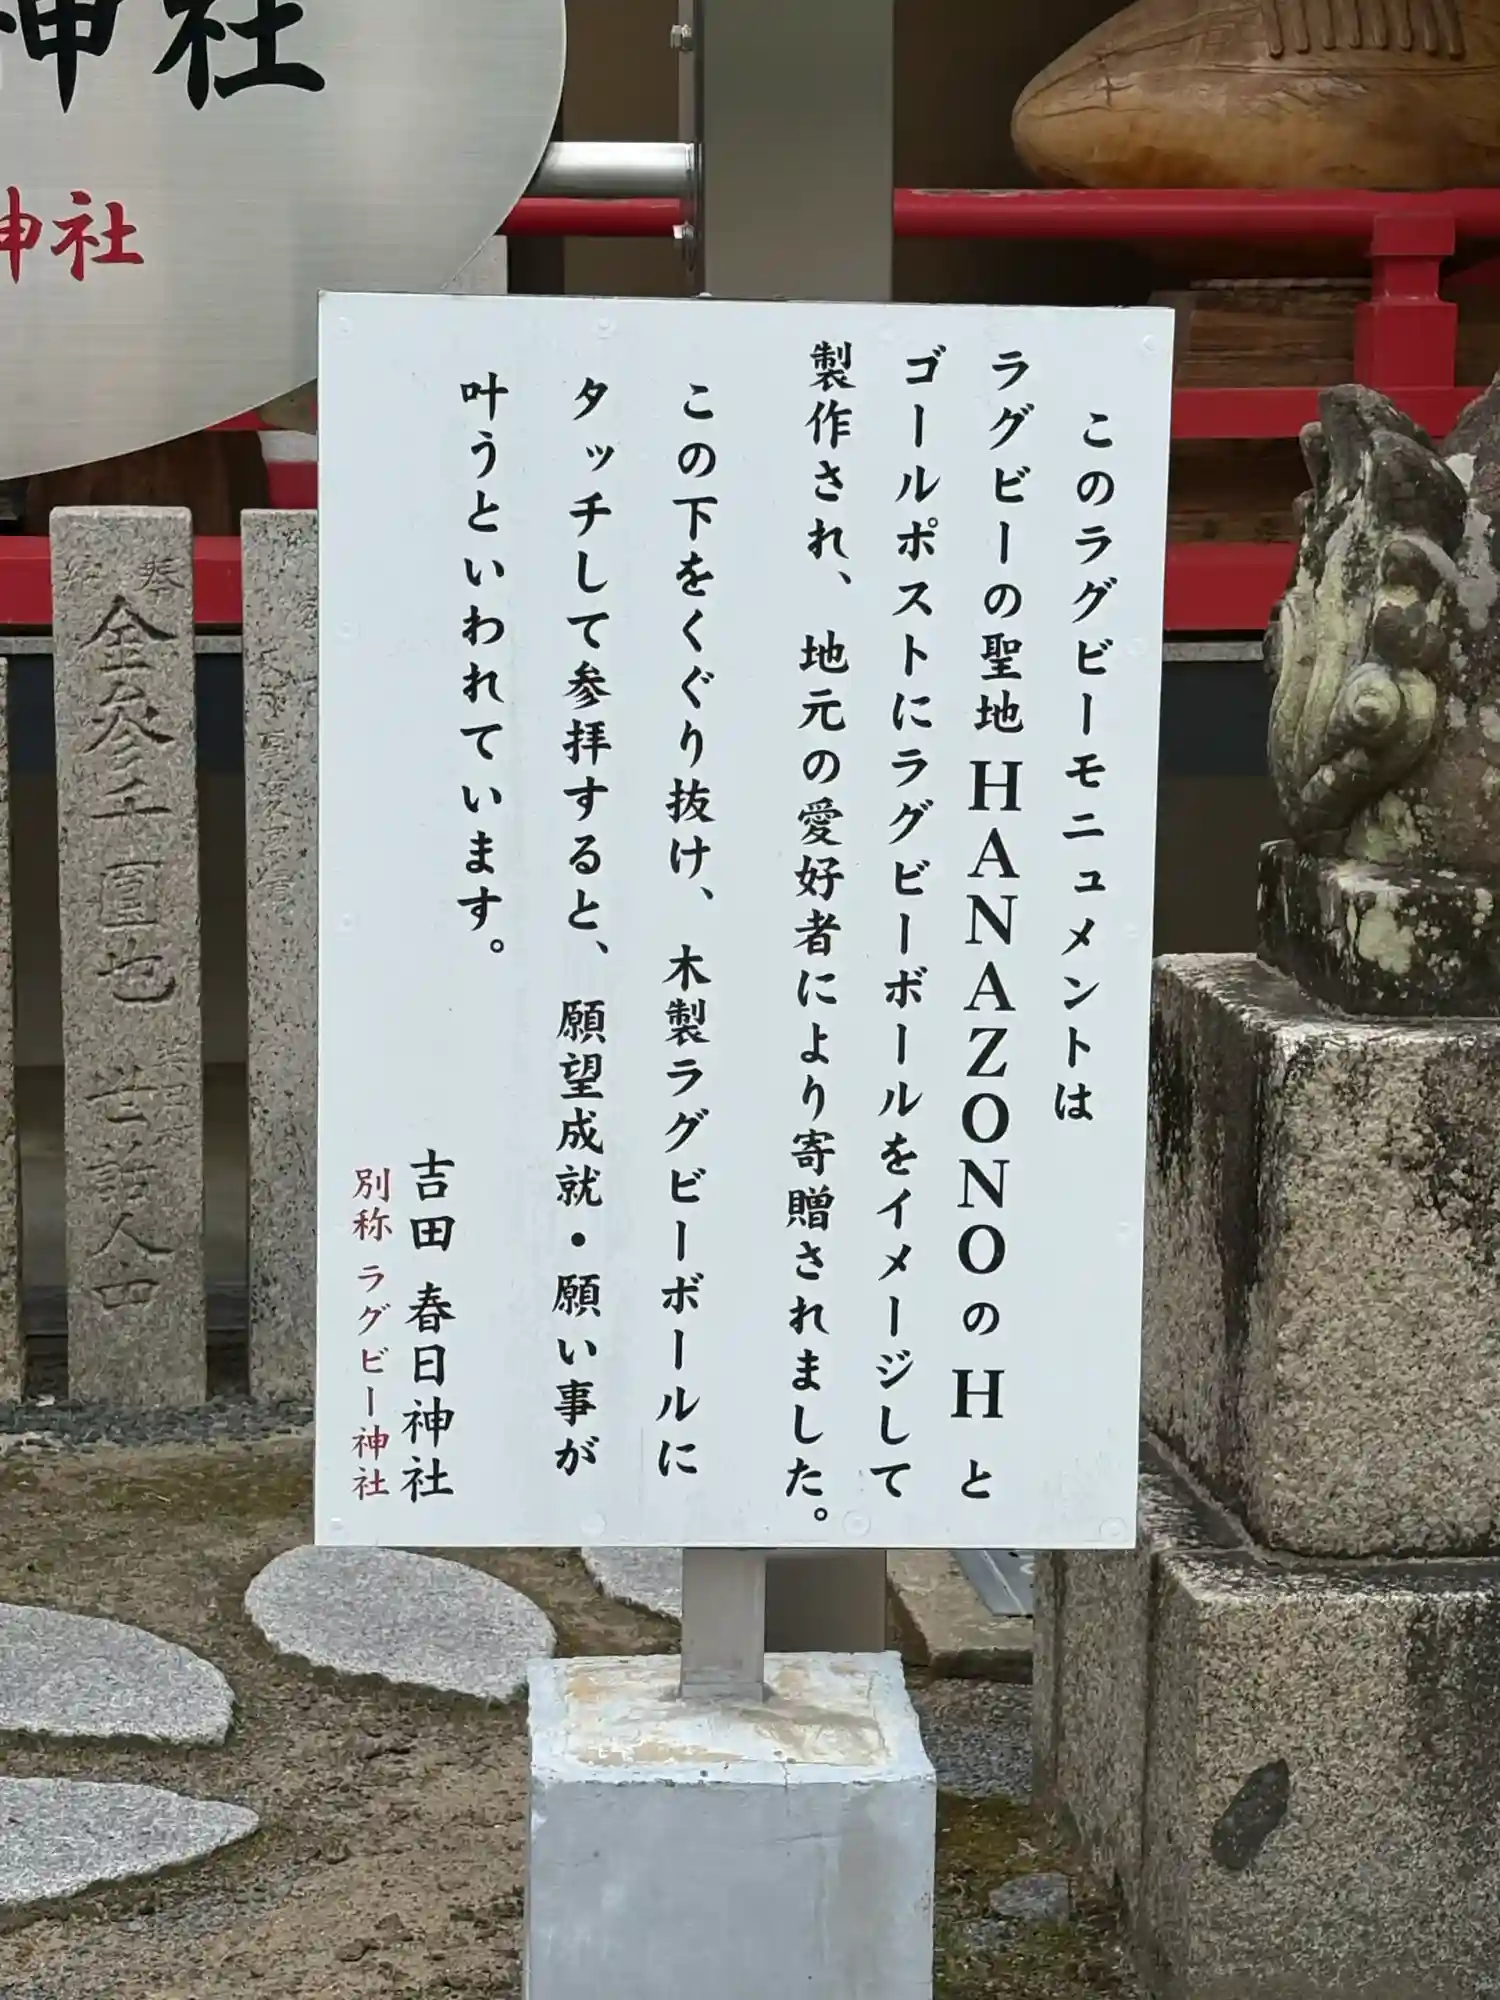 神社
神社
このラグビーモニュメントは
ラグビーの聖地HANAZONOのHと
ゴールポストにラグビーボールをイメージして
製作され、地元の愛好者により寄贈されました。
この下をくぐり抜け、木製ラグビーボールに
タッチして参拝すると、願望成就・願い事が
叶うといわれています。
吉田 春日神社
別称 ラグビー神社
金参千圓也